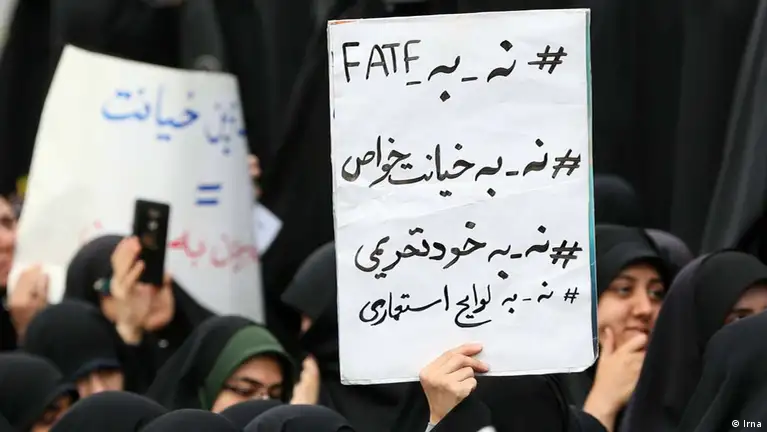 #نه_به_FATF
#نه_به خیانت خواص
#نه_به خودتحریمی
#نه_به لوایح استعماری
خیانت
=
© Irna